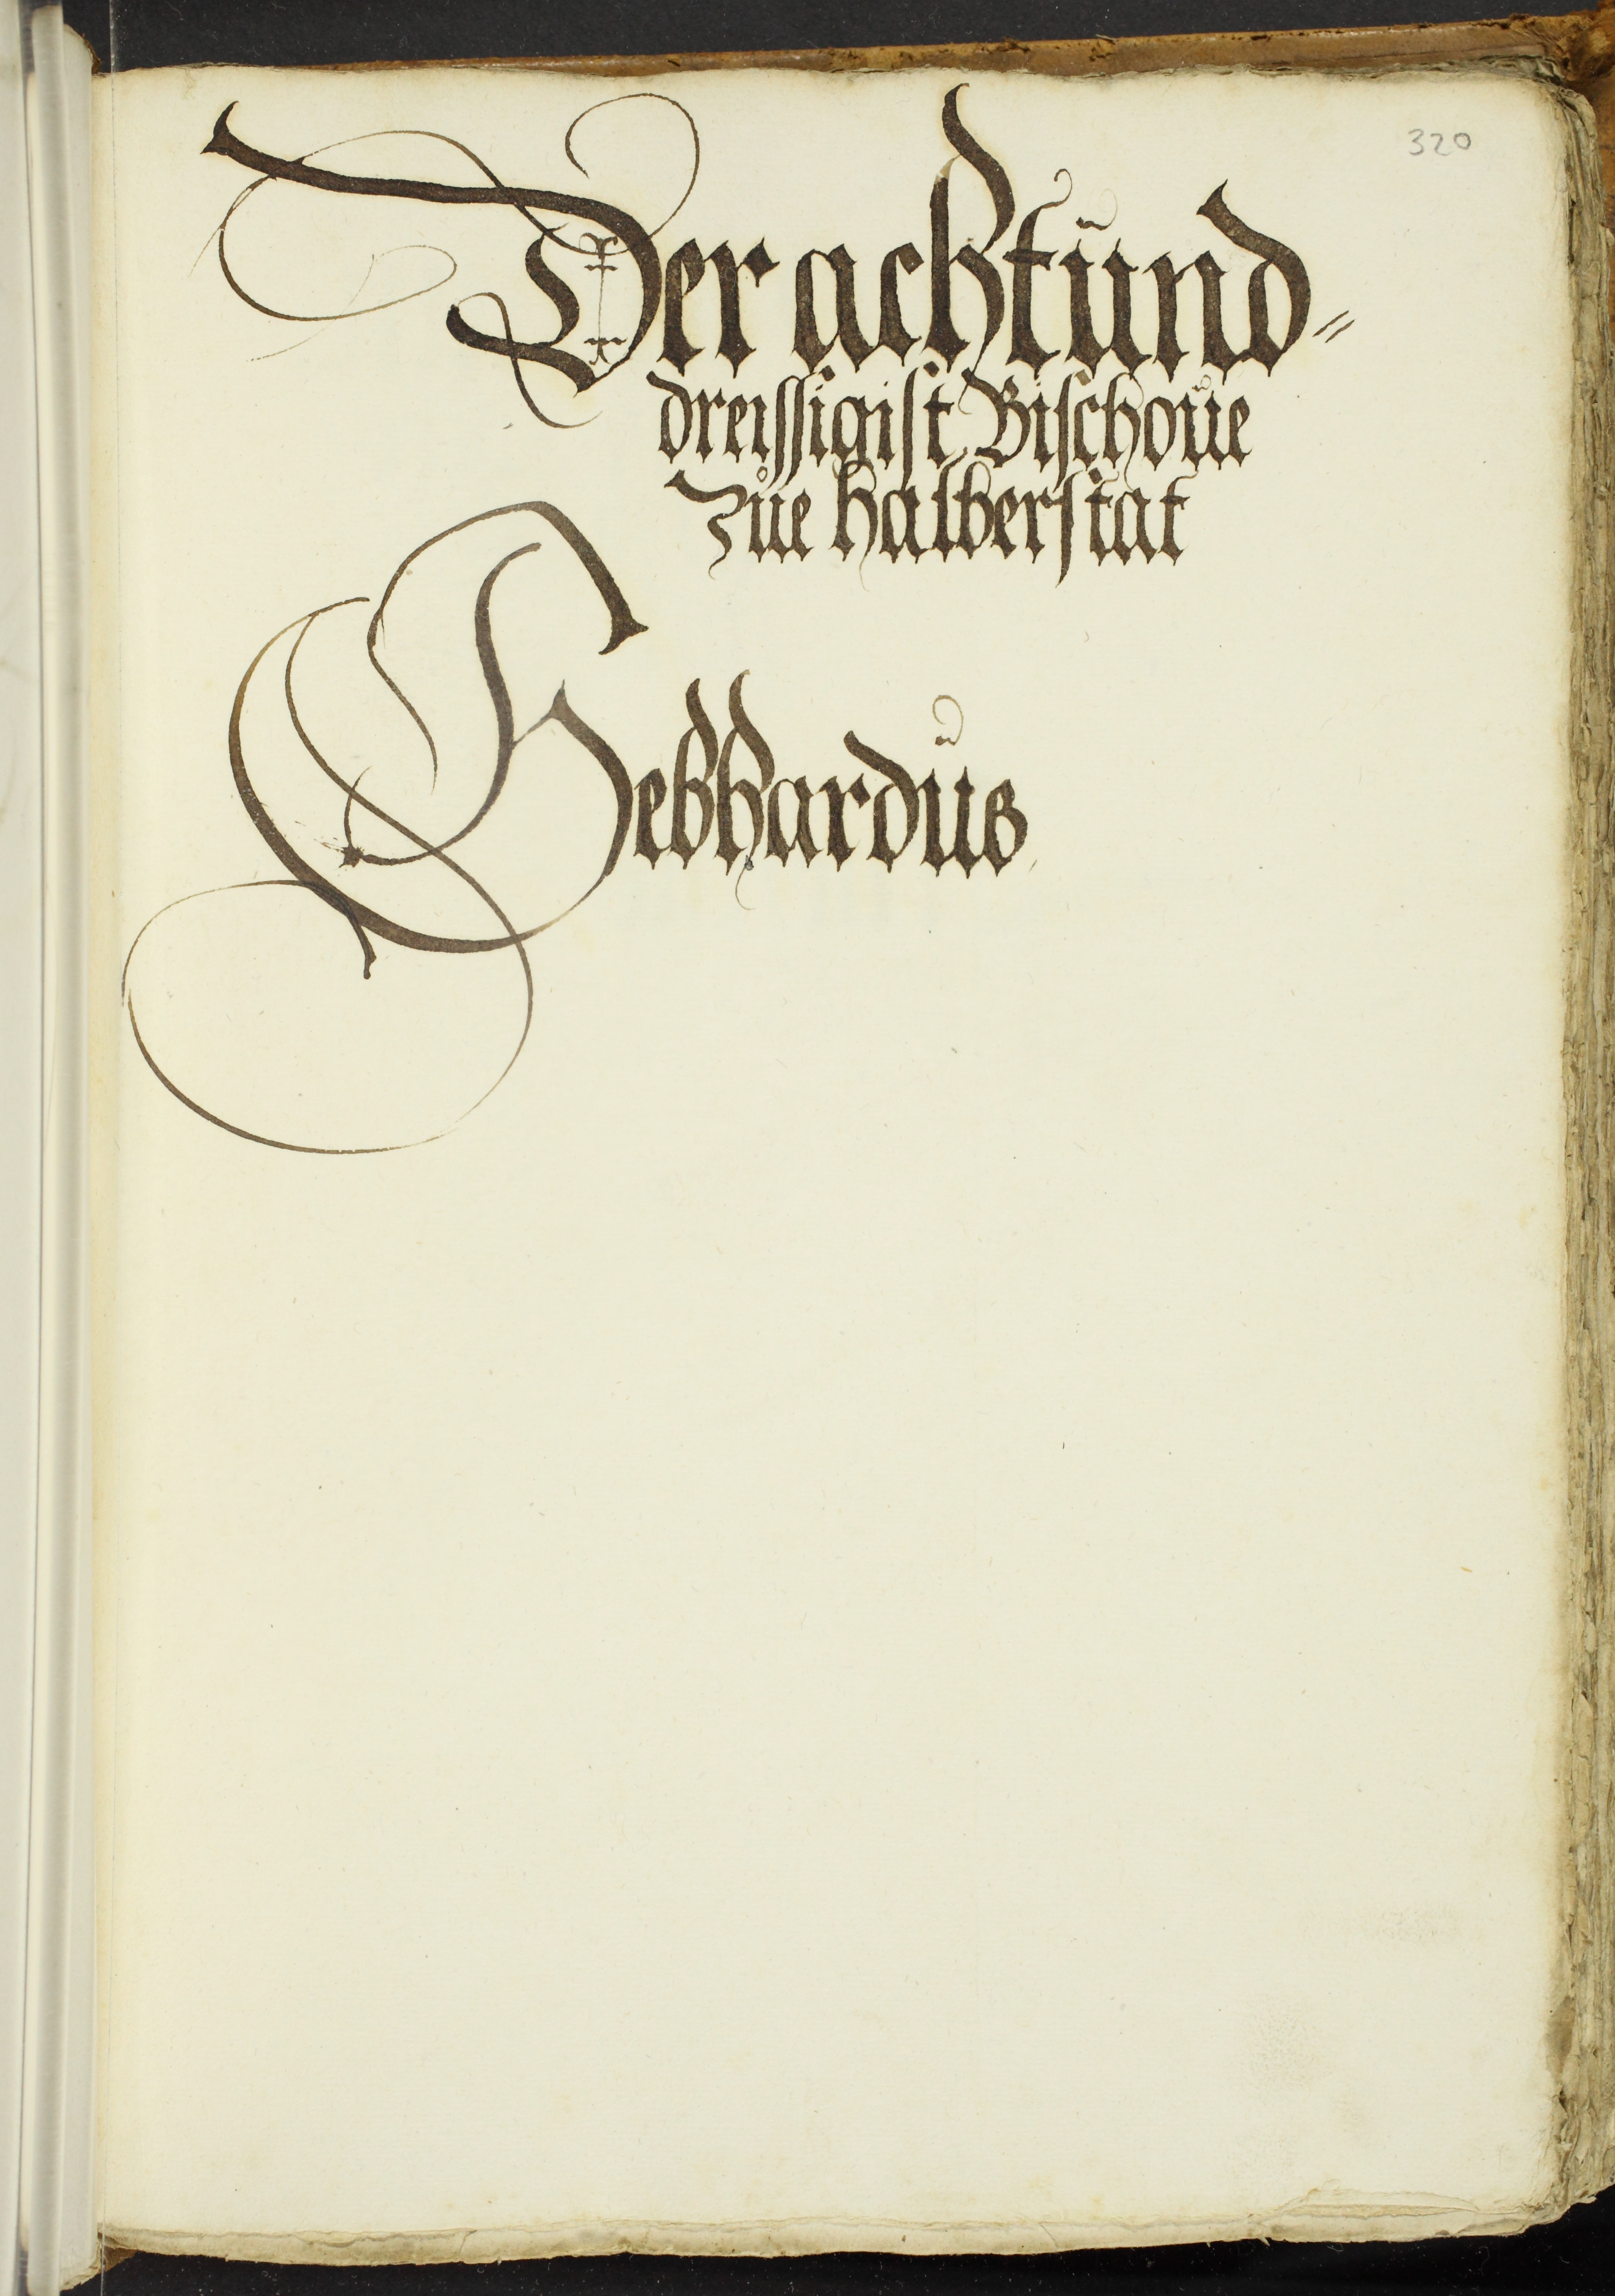 320
Der achtŭnd⸗
dreiſſigiſt Biſchoŭe
Zŭe halberſtat
Gebhardŭs